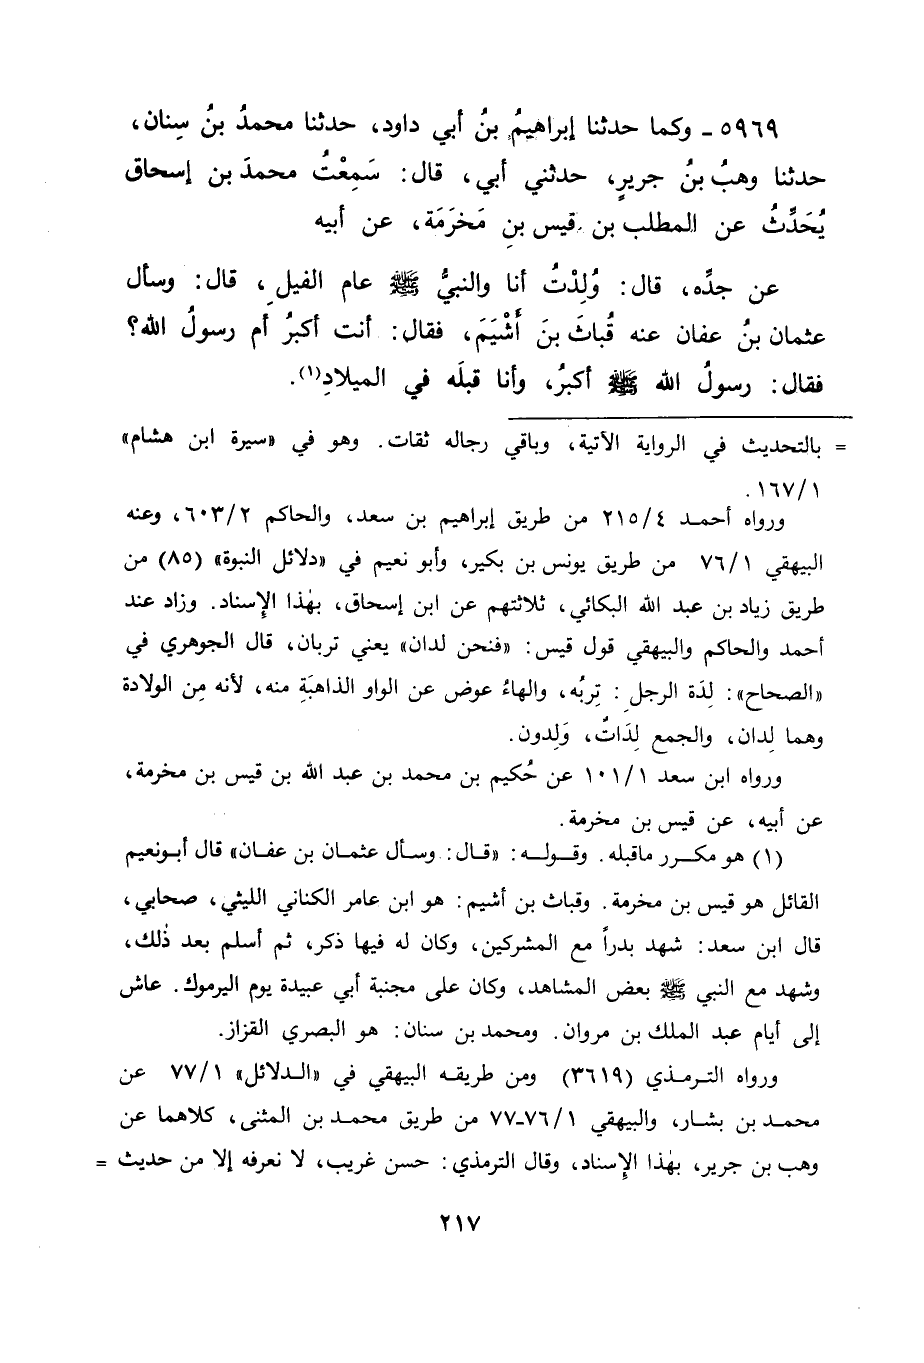 ٥٩٦٩ ـ وكما حدثنا إبراهيمُ بنُ أبي داود، حدثنا محمدُ بنُ سِنان،
حدثنا وهبُ بنُ جريرٍ، حدثني أبي، قال: سَمِعْتُ محمدَ بن إسحاق
يُحَدِّثُ عن المطلب بن قيس بنِ مَخرَمَة، عن أبيه
عن جدِّه، قال: وُلِدْتُ أنا والنبيُّ ﷺ عام الفيلِ، قال: وسأل
عثمان بنُ عفان عنه قُباثَ بنَ أَشْيَمَ، فقال: أنت أكبرُ أم رسولُ الله؟
فقال: رسولُ الله ﷺ أكبرُ، وأنا قبلَه في الميلادِ(١).
= بالتحديث في الرواية الآتية، وباقي رجاله ثقات. وهو في «سيرة ابن هشام»
١٦٧/١.
ورواه أحمد ٢١٥/٤ من طريق إبراهيم بن سعد، والحاكم ٦٠٣/٢، وعنه
البيهقي ٧٦/١ من طريق يونس بن بكير، وأبو نعيم في «دلائل النبوة» (٨٥) من
طريق زياد بن عبد الله البكائي، ثلاثتهم عن ابن إسحاق، بهٰذا الإِسناد. وزاد عند
أحمد والحاكم والبيهقي قول قيس: «فنحن لدان» يعني تربان، قال الجوهري في
«الصحاح»: لِدَة الرجل: تِربُه، والهاءُ عوض عن الواو الذاهبَةِ منه، لأنه مِن الولادة
وهما لِدان، والجمع لِدَاتٌ، وَلِدون.
ورواه ابن سعد ١٠١/١ عن حُكيم بن محمد بن عبد الله بن قيس بن مخرمة،
عن أبيه، عن قيس بن مخرمة.
(١) هو مكرر ماقبله. وقوله: «قال: وسأل عثمان بن عفان» قال أبونعيم
القائل هو قيس بن مخرمة. وقباث بن أشيم: هو ابن عامر الكناني الليثي، صحابي،
قال ابن سعد: شهد بدراً مع المشركين، وكان له فيها ذكر، ثم أسلم بعد ذٰلك،
وشهد مع النبي ﷺ بعض المشاهد، وكان على مجنبة أبي عبيدة يوم اليرموك. عاش
إلى أيام عبد الملك بن مروان. ومحمد بن سنان: هو البصري القزاز.
ورواه الترمذي (٣٦١٩) ومن طريقه البيهقي في «الدلائل» ٧٧/١ عن
محمد بن بشار، والبيهقي ٧٦/١ـ٧٧ من طريق محمد بن المثنى، كلاهما عن
وهب بن جرير، بهٰذا الإِسناد، وقال الترمذي: حسن غريب، لا نعرفه إلا من حديث =
٢١٧